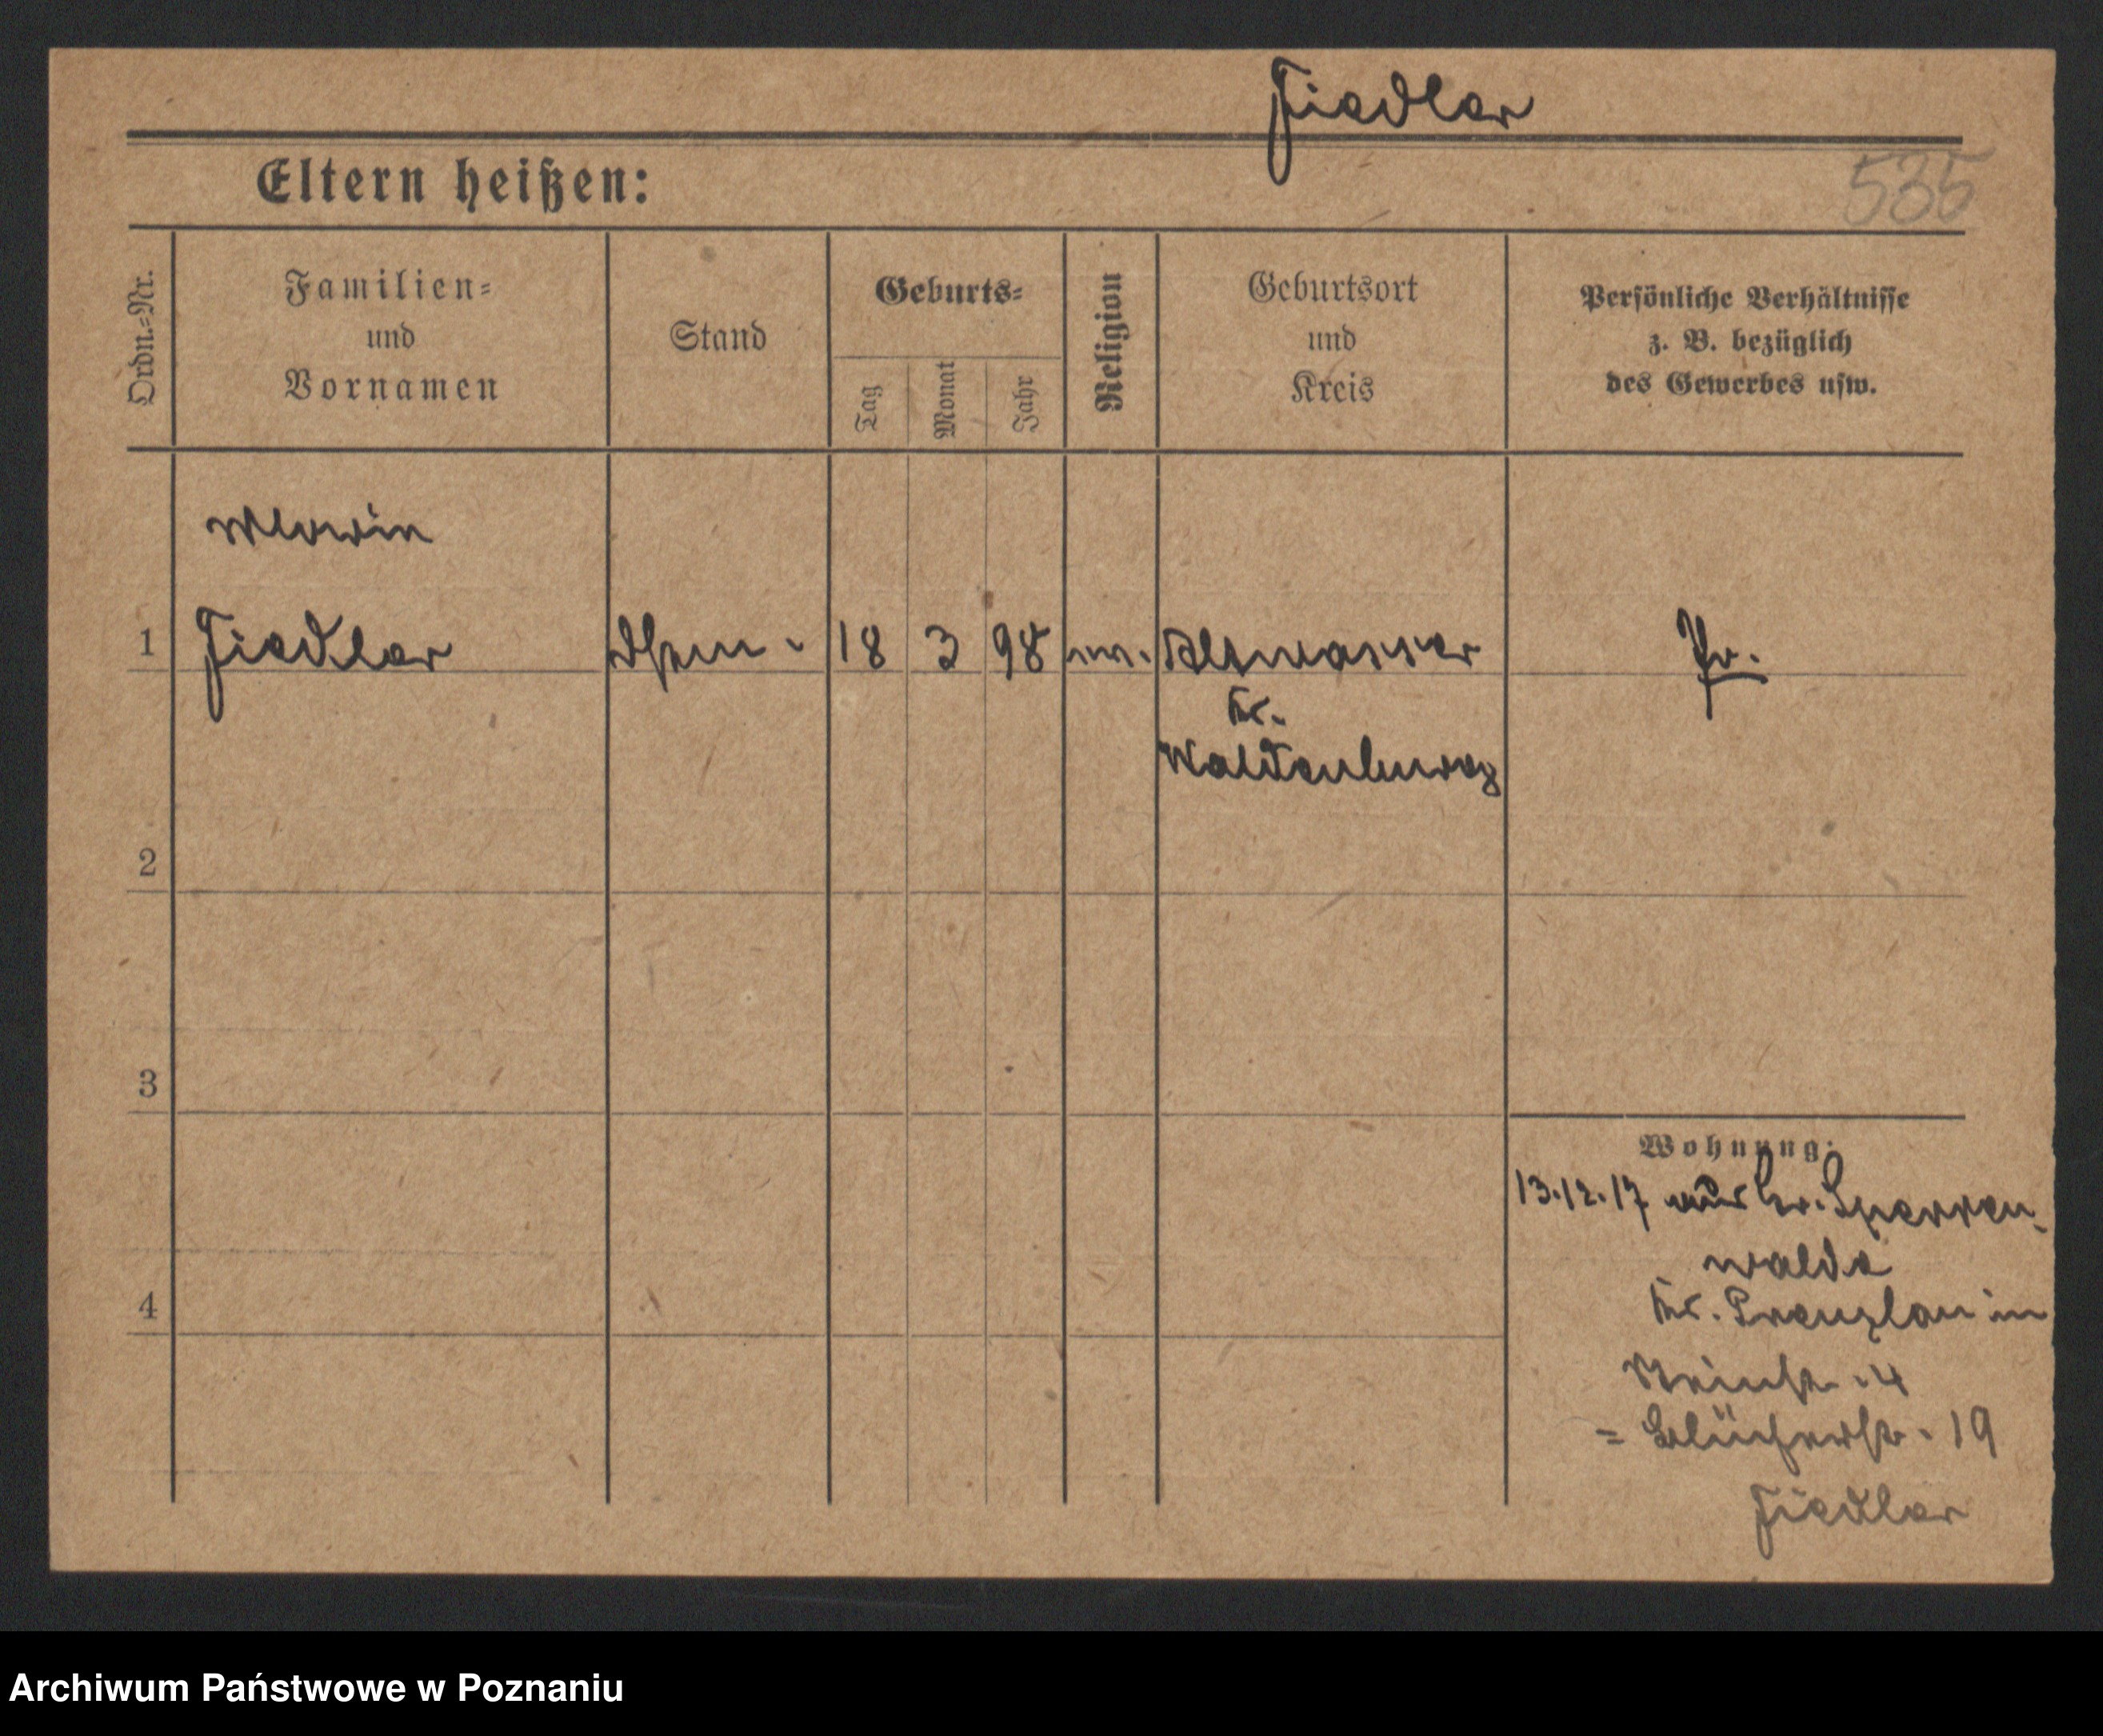 Fiedler
Eltern heißen:
535
Ordn.=Nr.
Familien=
und
Vornamen
Stand
Geburts=
Tag
Monat
Jahr
Religion
Geburtsort
und
Kreis
Persönliche Verhältnisse
z. B. bezüglich
des Gewerbes usw.
1 Fiedler 18 3 98 Altwasser Pr.
Kr.
Waldenburg
2
3
Wohnung:
13.12.17 aus Gr. Sperren-
walde
Kr. Prenzlau in
4
= Blücherstr. 19
Fiedler
4
Archiwum Państwowe w Poznaniu